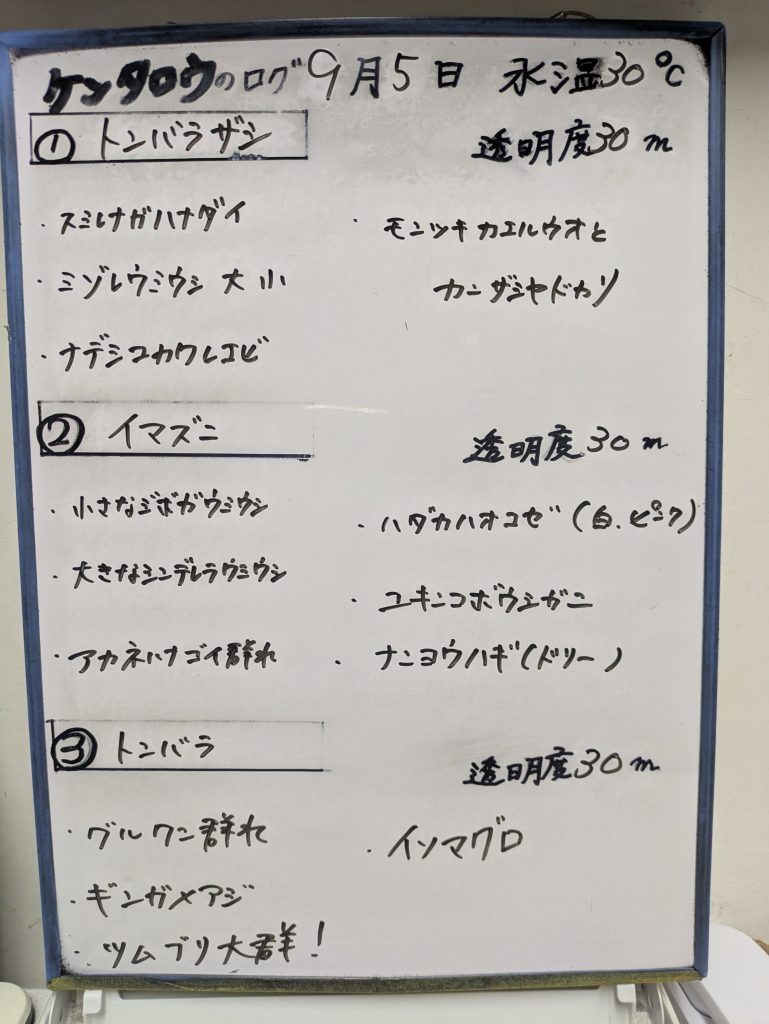 ケンタロウのログ 9月5日 水温30℃
① トンバラザシ 透明度30m
・スミレナガハナダイ
・ミゾレウミウシ 大 小
・ナデシコカクレエビ
・モンツキカエルウオと
カンザシヤドカリ
② イマズニ 透明度30m
・小さなジボガウミウシ
・大きなシンデレラウミウシ
・アカネハナゴイ群れ
・ハダカハオコゼ(白、ピンク)
・ユキンコボウシガニ
・ナンヨウハギ(ドリー)
③ トンバラ 透明度30m
・グルクン群れ
・ギンガメアジ
・ツムブリ大群!
・イソマグロ